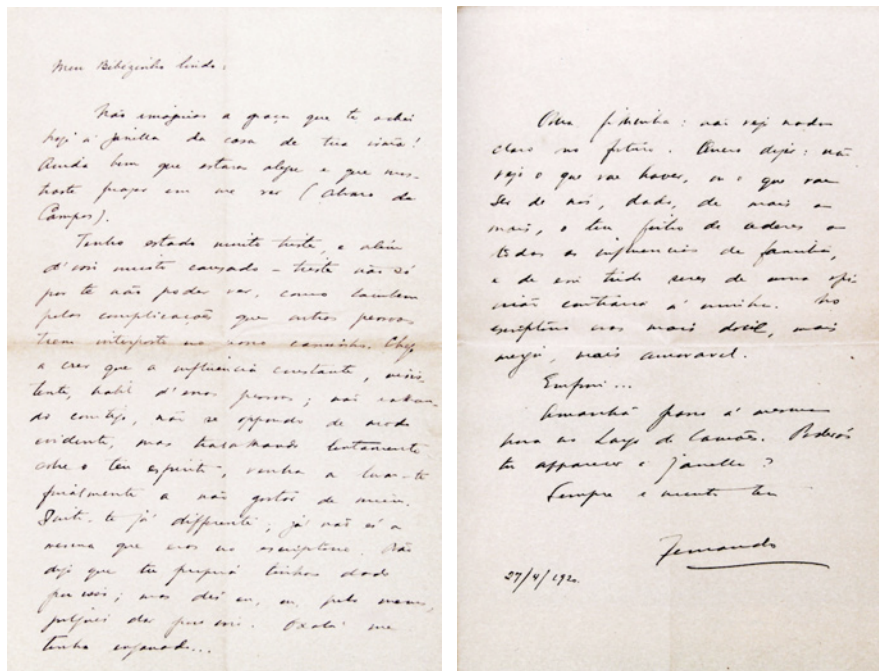 Meu Bébézinho lindo:
Não imaginas a graça que te achei
hoje á janella da casa de tua irmã!
Ainda bem que estavas alegre e que mos-
traste prazer em me ver (Alvaro de
Campos).
Tenho estado muito triste, e além
d'isso muito cansado - triste não só
por te não poder ver, como tambem
pelas complicações que outras pessoas
teem interposto no nosso caminho. Chego
a crer que a influencia constante, insis-
tente, habil d'essas pessoas; não ralhan-
do comtigo, não se oppondo de modo
evidente, mas trabalhando lentamente
sobre o teu espirito, venha a levar-te
finalmente a não gostar de mim.
Sinto-me já differente; já não és a
mesma que eras no escriptorio. Não
digo que tu propria tenhas dado
por isso; mas dei eu, ou, pelo menos,
julguei dar por isso. Oxalá me
tenha enganado...
Olha, filhinha: não vejo nada
claro no futuro. Quero dizer: não
vejo o que vae haver, ou o que vae
ser de nós, dado, de mais a
mais, o teu feitio de cederes a
todas as influencias de familia,
e de em tudo seres de uma opi-
nião contraria á minha. No
escriptorio eras mais docil, mais
meiga, mais amoravel.
Emfim...
Amanhã passo á mesma
hora no Largo de Camões. Poderás
tu apparecer á janella?
Sempre e muito teu
Fernando
27/4/1920